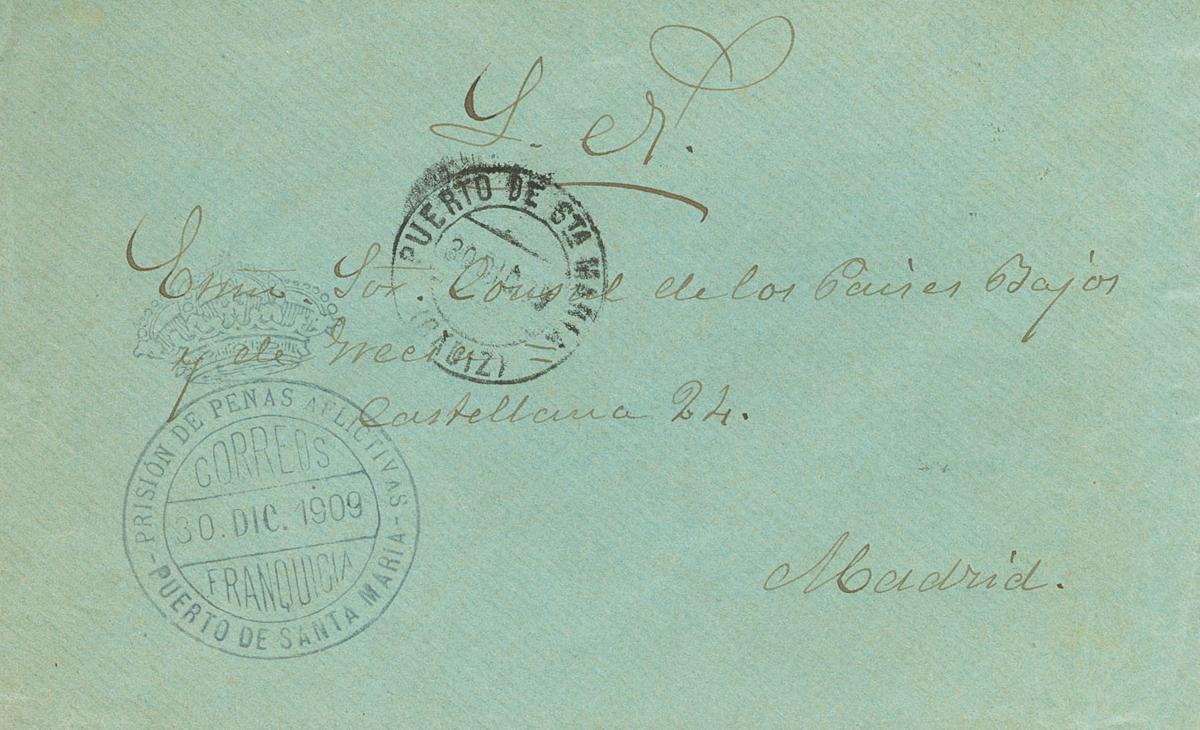 S. N.
PUERTO DE STA MARIA
30 DIC 09
(CADIZ)
Exmo. Sor. Consul de los Paises Bajos
y de Grecia =
Castellana 24.
PRISIÓN DE PENAS AFLICTIVAS
CORREOS
30. DIC. 1909
FRANQUICIA
- PUERTO DE SANTA MARIA -
Madrid.